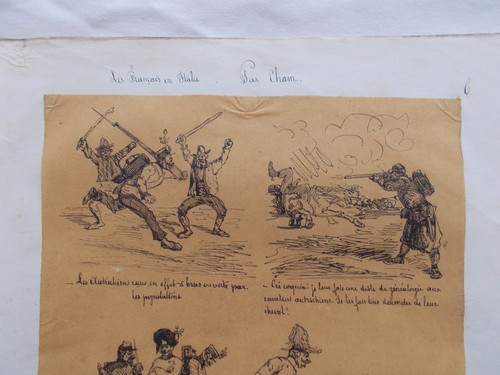 Les Français en Italie Par Cham. 6
_ Les Autrichiens reçus en effet à bras ouverts par
les populations
_ Ces coquins! je leur fais une drôle de généalogie aux
cavaliers autrichiens. Je les fais tous descendre de leur
cheval!